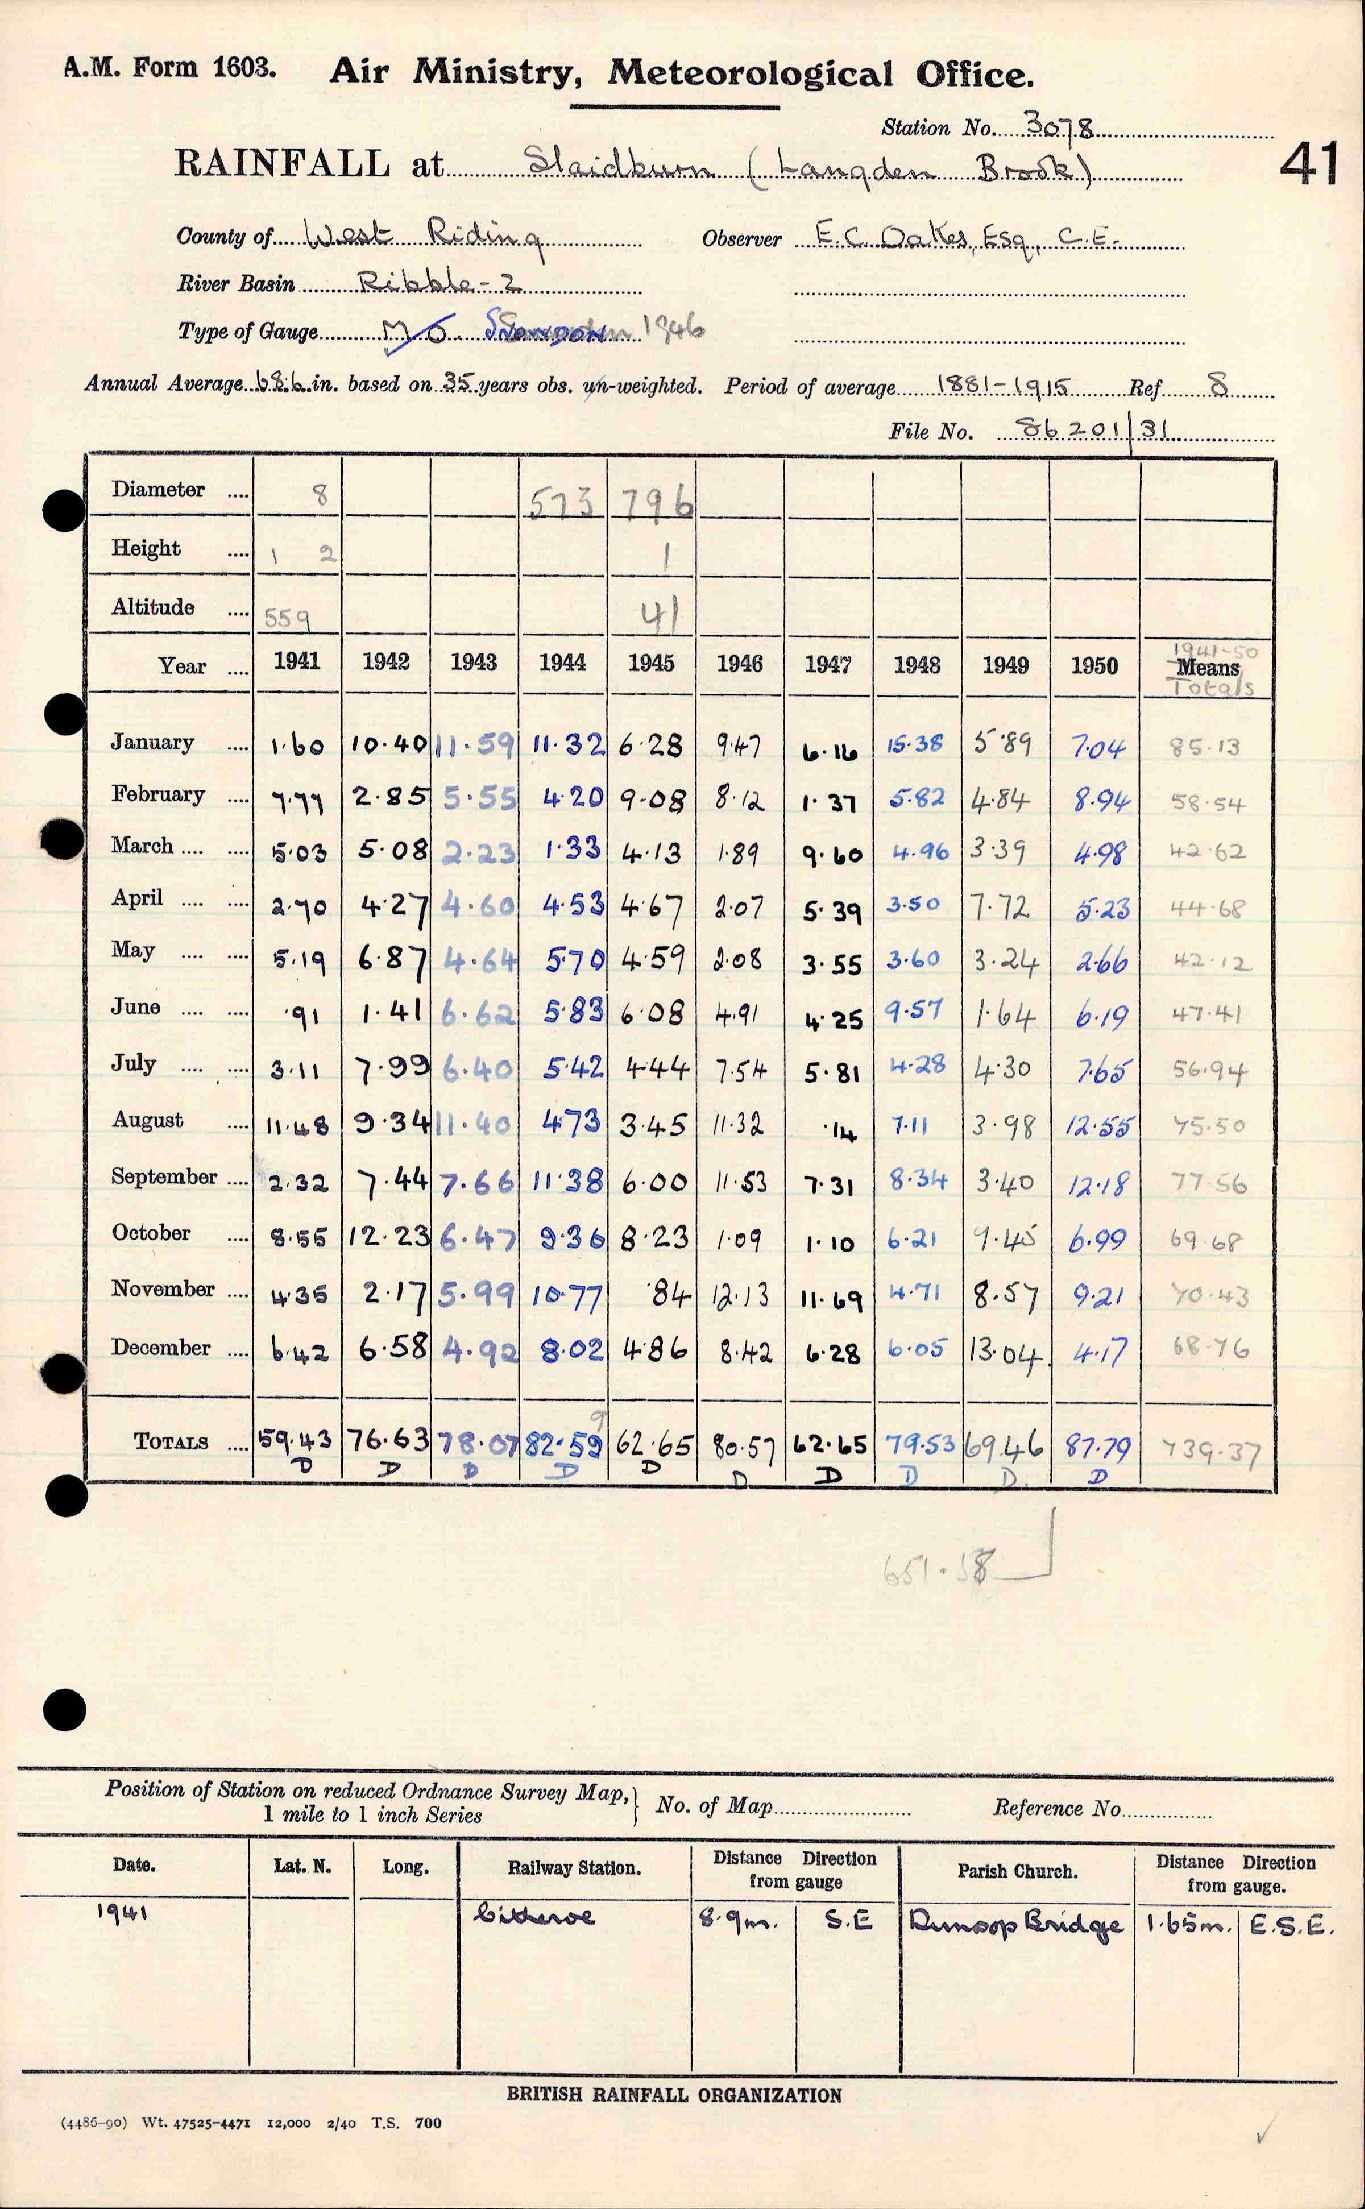 A.M. Form 1603. Air Ministry, Meteorological Office.
Station No. 3078
RAINFALL at Slaidburn (Langden Brook)
41
County of West Riding Observer E.C. Oakes, Esq., C.E.
River Basin Ribble-2
Type of Gauge M O. SNOWDON 1946
Annual Average 68.6 in. based on 35 years obs. un-weighted. Period of average 1881-1915 Ref 8
File No. 86201/31
Diameter .... 8 573 796
Height .... 1 2 1
Altitude .... 559 41
Year .... 1941 1942 1943 1944 1945 1946 1947 1948 1949 1950 1941-50 Means Totals
January .... 1.60 10.40 11.59 11.32 6.28 9.47 6.16 15.38 5.89 7.04 85.13
February .... 7.77 2.85 5.55 4.20 9.08 8.12 1.37 5.82 4.84 8.94 58.54
March .... .... 5.03 5.08 2.23 1.33 4.13 1.89 9.60 4.96 3.39 4.98 42.62
April .... .... 2.70 4.27 4.60 4.53 4.67 2.07 5.39 3.50 7.72 5.23 44.68
May .... .... 5.19 6.87 4.64 5.70 4.59 2.08 3.55 3.60 3.24 2.66 42.12
June .... .... .91 1.41 6.62 5.83 6.08 4.91 4.25 9.57 1.64 6.19 47.41
July .... .... 3.11 7.99 6.40 5.42 4.44 7.54 5.81 4.28 4.30 7.65 56.94
August .... 11.48 9.34 11.40 4.73 3.45 11.32 .14 7.11 3.98 12.55 75.50
September .... 2.32 7.44 7.66 11.38 6.00 11.53 7.31 8.34 3.40 12.18 77.56
October .... 8.55 12.23 6.47 9.36 8.23 1.09 1.10 6.21 9.45 6.99 69.68
November .... 4.35 2.17 5.99 10.77 .84 12.13 11.69 4.71 8.57 9.21 70.43
December .... 6.42 6.58 4.92 8.02 4.86 8.42 6.28 6.05 13.04 4.17 68.76
9
TOTALS .... 59.43 76.63 78.07 82.59 62.65 80.57 62.65 79.53 69.46 87.79 739.37
D D D D D D D D D D
Position of Station on reduced Ordnance Survey Map, 1 mile to 1 inch Series } No. of Map Reference No.
Date. Lat. N. Long. Railway Station. Distance Direction from gauge Parish Church. Distance Direction from gauge.
1941 Clitheroe 8.9m. S.E Dunsop Bridge 1.65m. E.S.E.
BRITISH RAINFALL ORGANIZATION
(4486-90) Wt. 47525-4471 12,000 2/40 T.S. 700